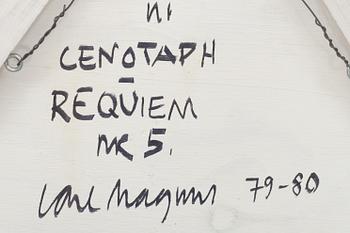 CENOTAPH
-
REQUIEM
NR 5.
Carl Magnus 79-80